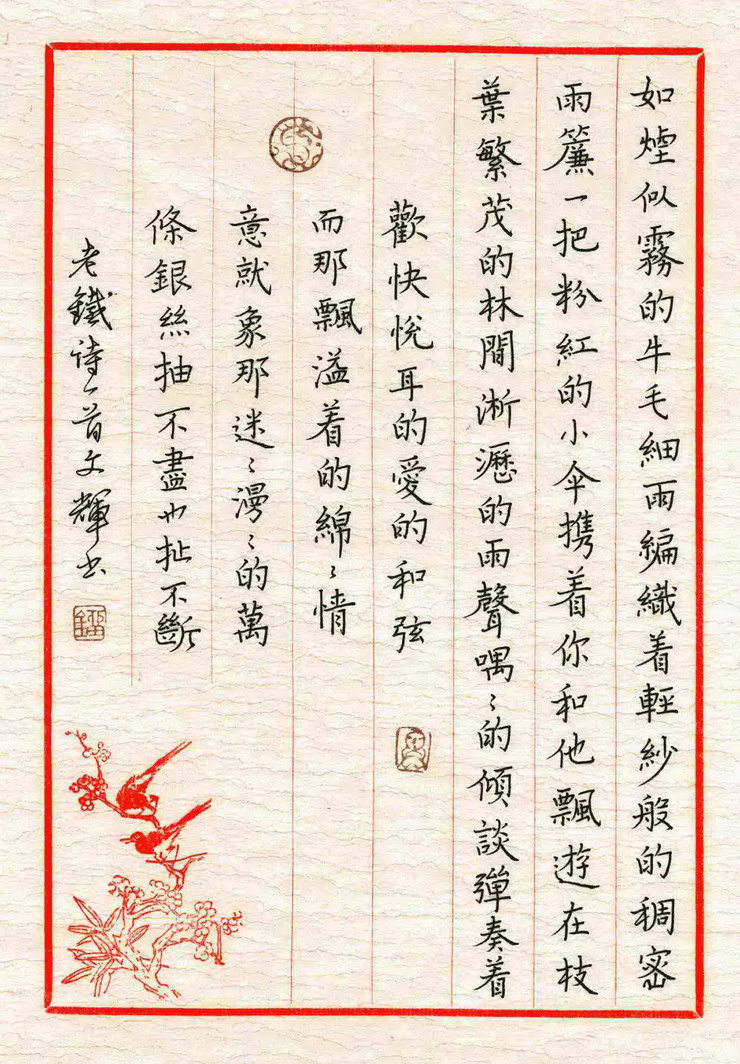 如煙似霧的牛毛細雨編織着輕紗般的稠密
雨簾一把粉紅的小傘携着你和他飄遊在枝
葉繁茂的林間淅瀝的雨聲喁〻的傾談彈奏着
歡快悅耳的愛的和弦
而那飄溢着的綿〻情
意就象那迷〻漫〻的萬
條銀絲抽不盡也扯不斷
老鐵詩一首文輝书